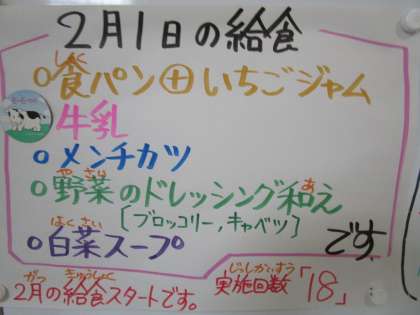 2月1日の給食
しょく
○食パン⊕いちごジャム
牛乳
○メンチカツ
やさい あ
○野菜のドレッシング和え
〔ブロッコリー,キャベツ〕
はくさい
○白菜スープ
です
がつ きゅうしょく
2月の給食スタートです。
じっしかいすう
実施回数「18」